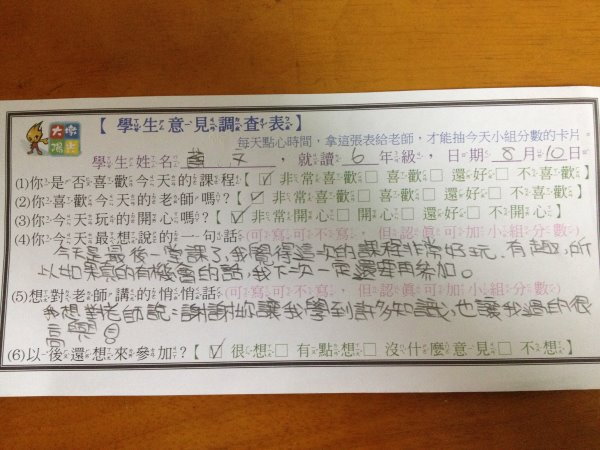 大樂陽光
【學生意見調查表】
每天點心時間，拿這張表給老師，才能抽今天小組分數的卡片。
學生姓名：黃 文，就讀 6 年級，日期 8 月 10 日
(1)你是否喜歡今天的課程【☑非常喜歡□喜歡□還好□不喜歡】
(2)你喜歡今天的老師嗎？【☑非常喜歡□喜歡□還好□不喜歡】
(3)今天玩的開心嗎？【☑非常開心□開心□還好□不開心】
(4)你今天最想說的一句話(可寫可不寫，但認真可加小組分數)
今天是最後一堂課了，我覺得這次的課程非常好玩、有趣，所
以如果真的有機會的話，我下次一定還要再參加。
(5)想對老師講的悄悄話(可寫可不寫，但認真可加小組分數)
我想對老師說：謝謝妳讓我學到許多知識，也讓我過的很
高興
(6)以後還想來參加？【☑很想□有點想□沒什麼意見□不想】